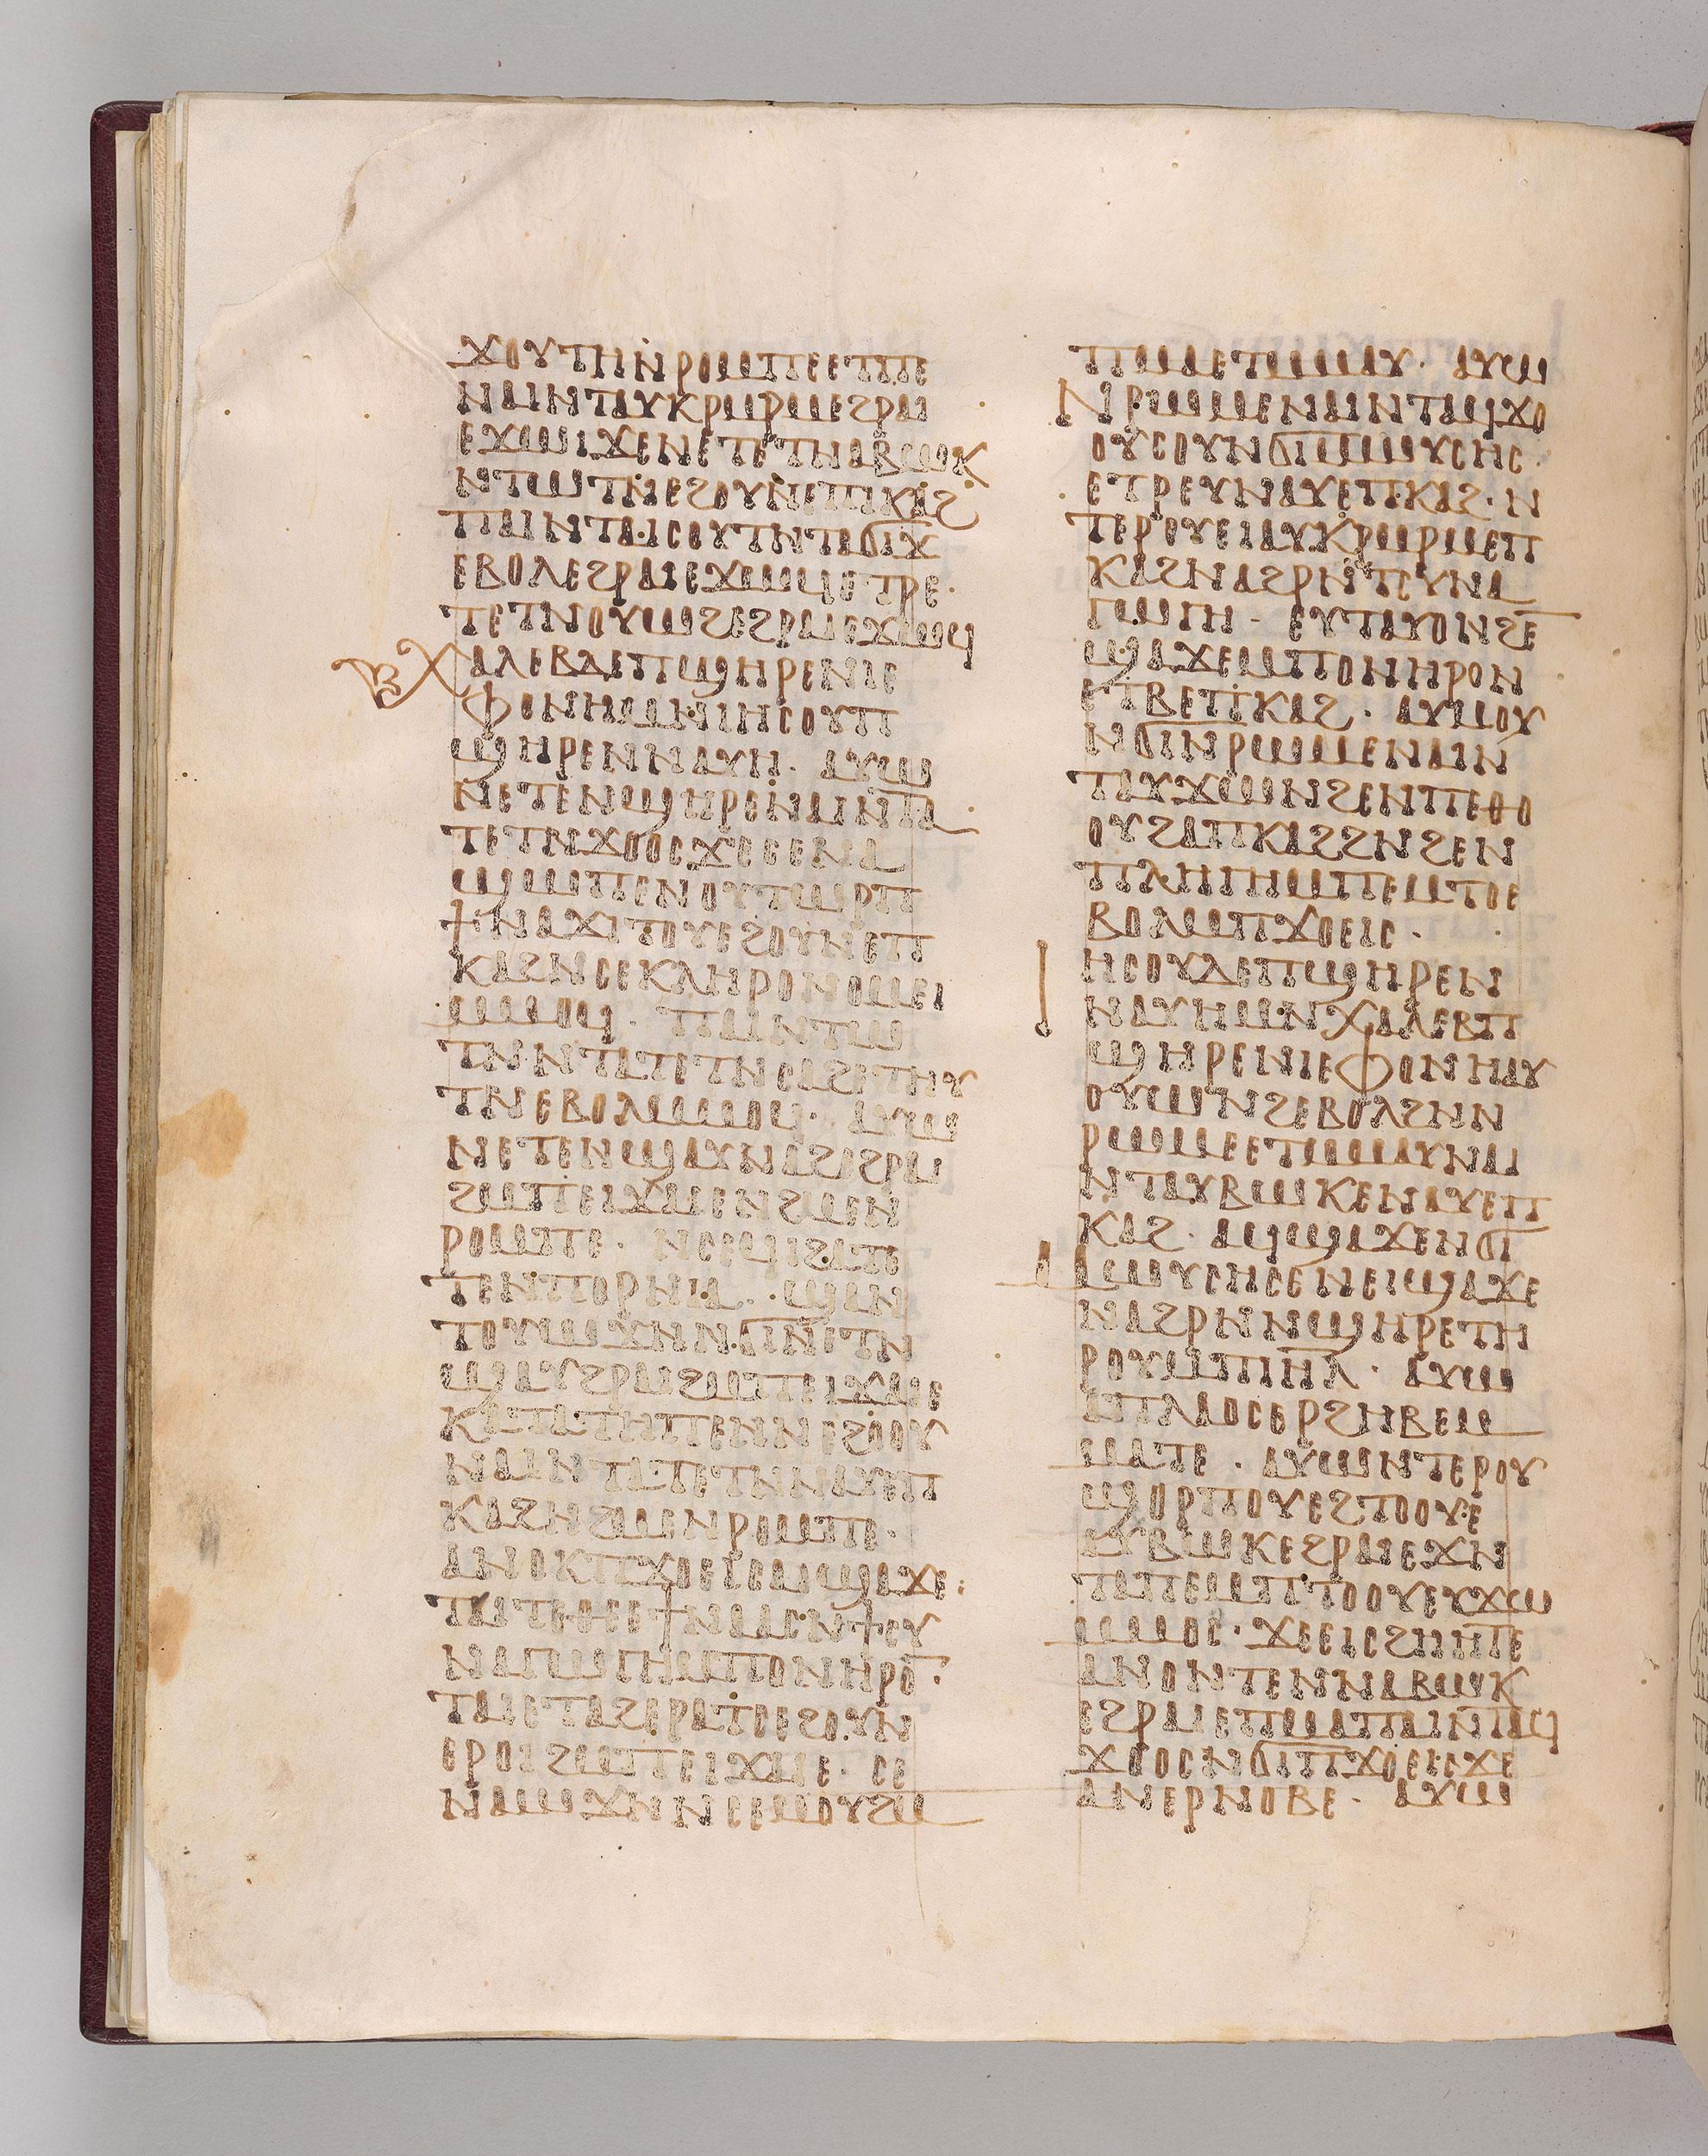 ϫⲟⲩⲧⲏⲛⲣⲟⲙⲡⲉⲉⲧⲡⲉ
ⲛⲁⲓⲛⲧⲁⲩⲕⲣⲙⲣⲙⲉϩⲣⲁⲓ
ⲉϫⲱⲓϫⲉⲛⲉⲧⲉⲧⲛⲁⲃⲱⲕ
ⲛⲧⲱⲧⲛⲉϩⲟⲩⲛⲉⲡⲕⲁϩ
ⲡⲁⲓⲛⲧⲁⲓⲥⲟⲩⲧⲛⲧⲁϭⲓϫ
ⲉⲃⲟⲗⲉϩⲣⲁⲓⲉϫⲱϥⲉⲧⲣⲉ·
ⲧⲉⲧⲛⲟⲩⲱϩⲉϩⲣⲁⲓⲉϫⲱϥ
ⲭⲁⲗⲉⲃⲇⲉⲡϣⲏⲣⲉⲛⲓⲉ
ⲫⲟⲛⲏⲙⲛⲓⲏⲥⲟⲩⲡ
ϣⲏⲣⲉⲛⲛⲁⲩⲏ· ⲁⲩⲱ
ⲛⲉⲧⲉⲛϣⲏⲣⲉⲛⲁⲓⲛⲧⲁ
ⲧⲉⲧⲛϫⲟⲟⲥϫⲉⲥⲉⲛⲁ
ϣⲱⲡⲉⲛⲟⲩⲧⲱⲣⲡ
ϯⲛⲁϫⲓⲧⲟⲩⲉϩⲟⲩⲛⲉⲡ
ⲕⲁϩⲛⲥⲉⲕⲗⲏⲣⲟⲛⲟⲙⲉⲓ
ⲙⲙⲟϥ· ⲡⲁⲓⲛⲧⲱ
ⲧⲛⲛⲧⲁⲧⲉⲧⲛⲥⲁϩⲉⲧⲏⲩ
ⲧⲛⲉⲃⲟⲗⲙⲙⲟϥ· ⲁⲩⲱ
ⲛⲉⲧⲉⲛϣⲁⲩⲛⲁϩⲉϩⲣⲁⲓ
ϩⲙⲡⲉⲓϫⲁⲓⲉⲛϩⲙⲉⲛ
ⲣⲟⲙⲡⲉ· ⲛⲥⲉϥⲓϩⲁⲡⲉ
ⲧⲉⲛⲡⲟⲣⲛⲓⲁ· ϣⲁⲛ
ⲧⲟⲩⲱϫⲛⲛϭⲓⲛⲉⲧⲛ
ϣⲁⲩϩⲣⲁⲓϩⲙⲡⲉⲓϫⲁⲓⲉ
ⲕⲁⲧⲁⲧⲏⲡⲉⲛⲛⲉϩⲟⲟⲩ
ⲛⲁⲓⲛⲧⲁⲧⲉⲧⲛⲛⲁⲩⲉⲡ
ⲕⲁϩⲛϩⲙⲉⲛⲣⲟⲙⲡⲉ·
ⲁⲛⲟⲕⲡϫⲟⲉⲓⲥⲁⲓϣⲁϫⲉ
ⲧⲁⲓⲧⲉⲑⲉⲉϯⲛⲁⲁⲥⲛϯⲥⲩ
ⲛⲁⲅⲱⲅⲏⲙⲡⲟⲛⲏⲣⲟ·
ⲧⲁⲓⲉⲧⲁϩⲉⲣⲁⲧⲥⲉϩⲟⲩⲛ
ⲉⲣⲟⲓϩⲙⲡⲉⲓϫⲁⲓⲉ· ⲥⲉ
ⲛⲁⲱϫⲛⲛⲥⲉⲙⲟⲩϩⲙ
ⲡⲙⲁⲉⲧⲙⲙⲁⲩ· ⲁⲩⲱ
ⲛⲣⲱⲙⲉⲛⲁⲓⲛⲧⲁϥϫⲟ
ⲟⲩⲥⲟⲩⲛϭⲓⲙⲱⲩⲥⲏⲥ·
ⲉⲧⲣⲉⲩⲛⲁⲩⲉⲡⲕⲁϩ·ⲛ
ⲧⲉⲣⲟⲩⲉⲓⲁⲩⲕⲣⲙⲣⲙⲉⲡ
ⲕⲁϩⲛⲁϩⲣⲛⲧⲥⲩⲛⲁ
ⲅⲱⲅⲏ· ⲉⲩⲧⲁⲩⲟⲛϩⲉ
ϣⲁϫⲉⲙⲡⲟⲛⲏⲣⲟⲛ
ⲉⲧⲃⲉⲡⲕⲁϩ· ⲁⲩⲙⲟⲩ
ⲛϭⲓⲛⲣⲱⲙⲉⲛⲁⲓⲛ
ⲧⲁⲩϫⲱⲛϩⲉⲛⲡⲉⲑⲟ
ⲟⲩϩⲁⲡⲕⲁϩϩⲛϩⲉⲛ
ⲡⲗⲏⲅⲏⲙⲡⲉⲙⲧⲟⲉ
ⲃⲟⲗⲙⲡϫⲟⲉⲓⲥ·
ⲓⲏⲥⲟⲩⲇⲉⲡϣⲏⲣⲉⲛ
ⲛⲁⲩⲏⲙⲛⲭⲁⲗⲉⲃⲡ
ϣⲏⲣⲉⲛⲓⲉⲫⲟⲛⲏⲁⲩ
ⲟⲩⲱⲛϩⲉⲃⲟⲗϩⲛⲛ
ⲣⲱⲙⲉⲉⲧⲙⲙⲁⲩⲛⲁⲓ
ⲛⲧⲁⲩⲃⲱⲕⲉⲛⲁⲩⲉⲡ
ⲕⲁϩ· ⲁϥϣⲁϫⲉⲛϭⲓ
ⲙⲱⲩⲥⲏⲥⲉⲛⲉⲓϣⲁϫⲉ
ⲛⲁϩⲣⲛⲛϣⲏⲣⲉⲧⲏ
ⲣⲟⲩⲙⲡⲓⲏⲗ· ⲁⲩⲱ
ⲁⲡⲗⲁⲟⲥⲉⲣϩⲏⲃⲉⲙ
ⲙⲁⲧⲉ· ⲁⲩⲱⲛⲧⲉⲣⲟⲩ
ϣⲟⲣⲡⲟⲩⲉϩⲧⲟⲟⲩⲉ
ⲁⲩⲃⲱⲕⲉϩⲣⲁⲓⲉϫⲛ
ⲧⲁⲡⲉⲙⲡⲧⲟⲟⲩⲉⲩϫⲱ
ⲙⲙⲟⲥ· ϫⲉⲉⲓⲥϩⲏⲏⲧⲉ
ⲁⲛⲟⲛⲧⲉⲛⲛⲁⲃⲱⲕ
ⲉϩⲣⲁⲓⲉⲡⲙⲁⲡⲁⲓⲛⲧⲁϥ
ϫⲟⲟⲥⲛϭⲓⲡϫⲟⲉⲓⲥϫⲉ
ⲁⲛⲉⲣⲛⲟⲃⲉ· ⲁⲩⲱ